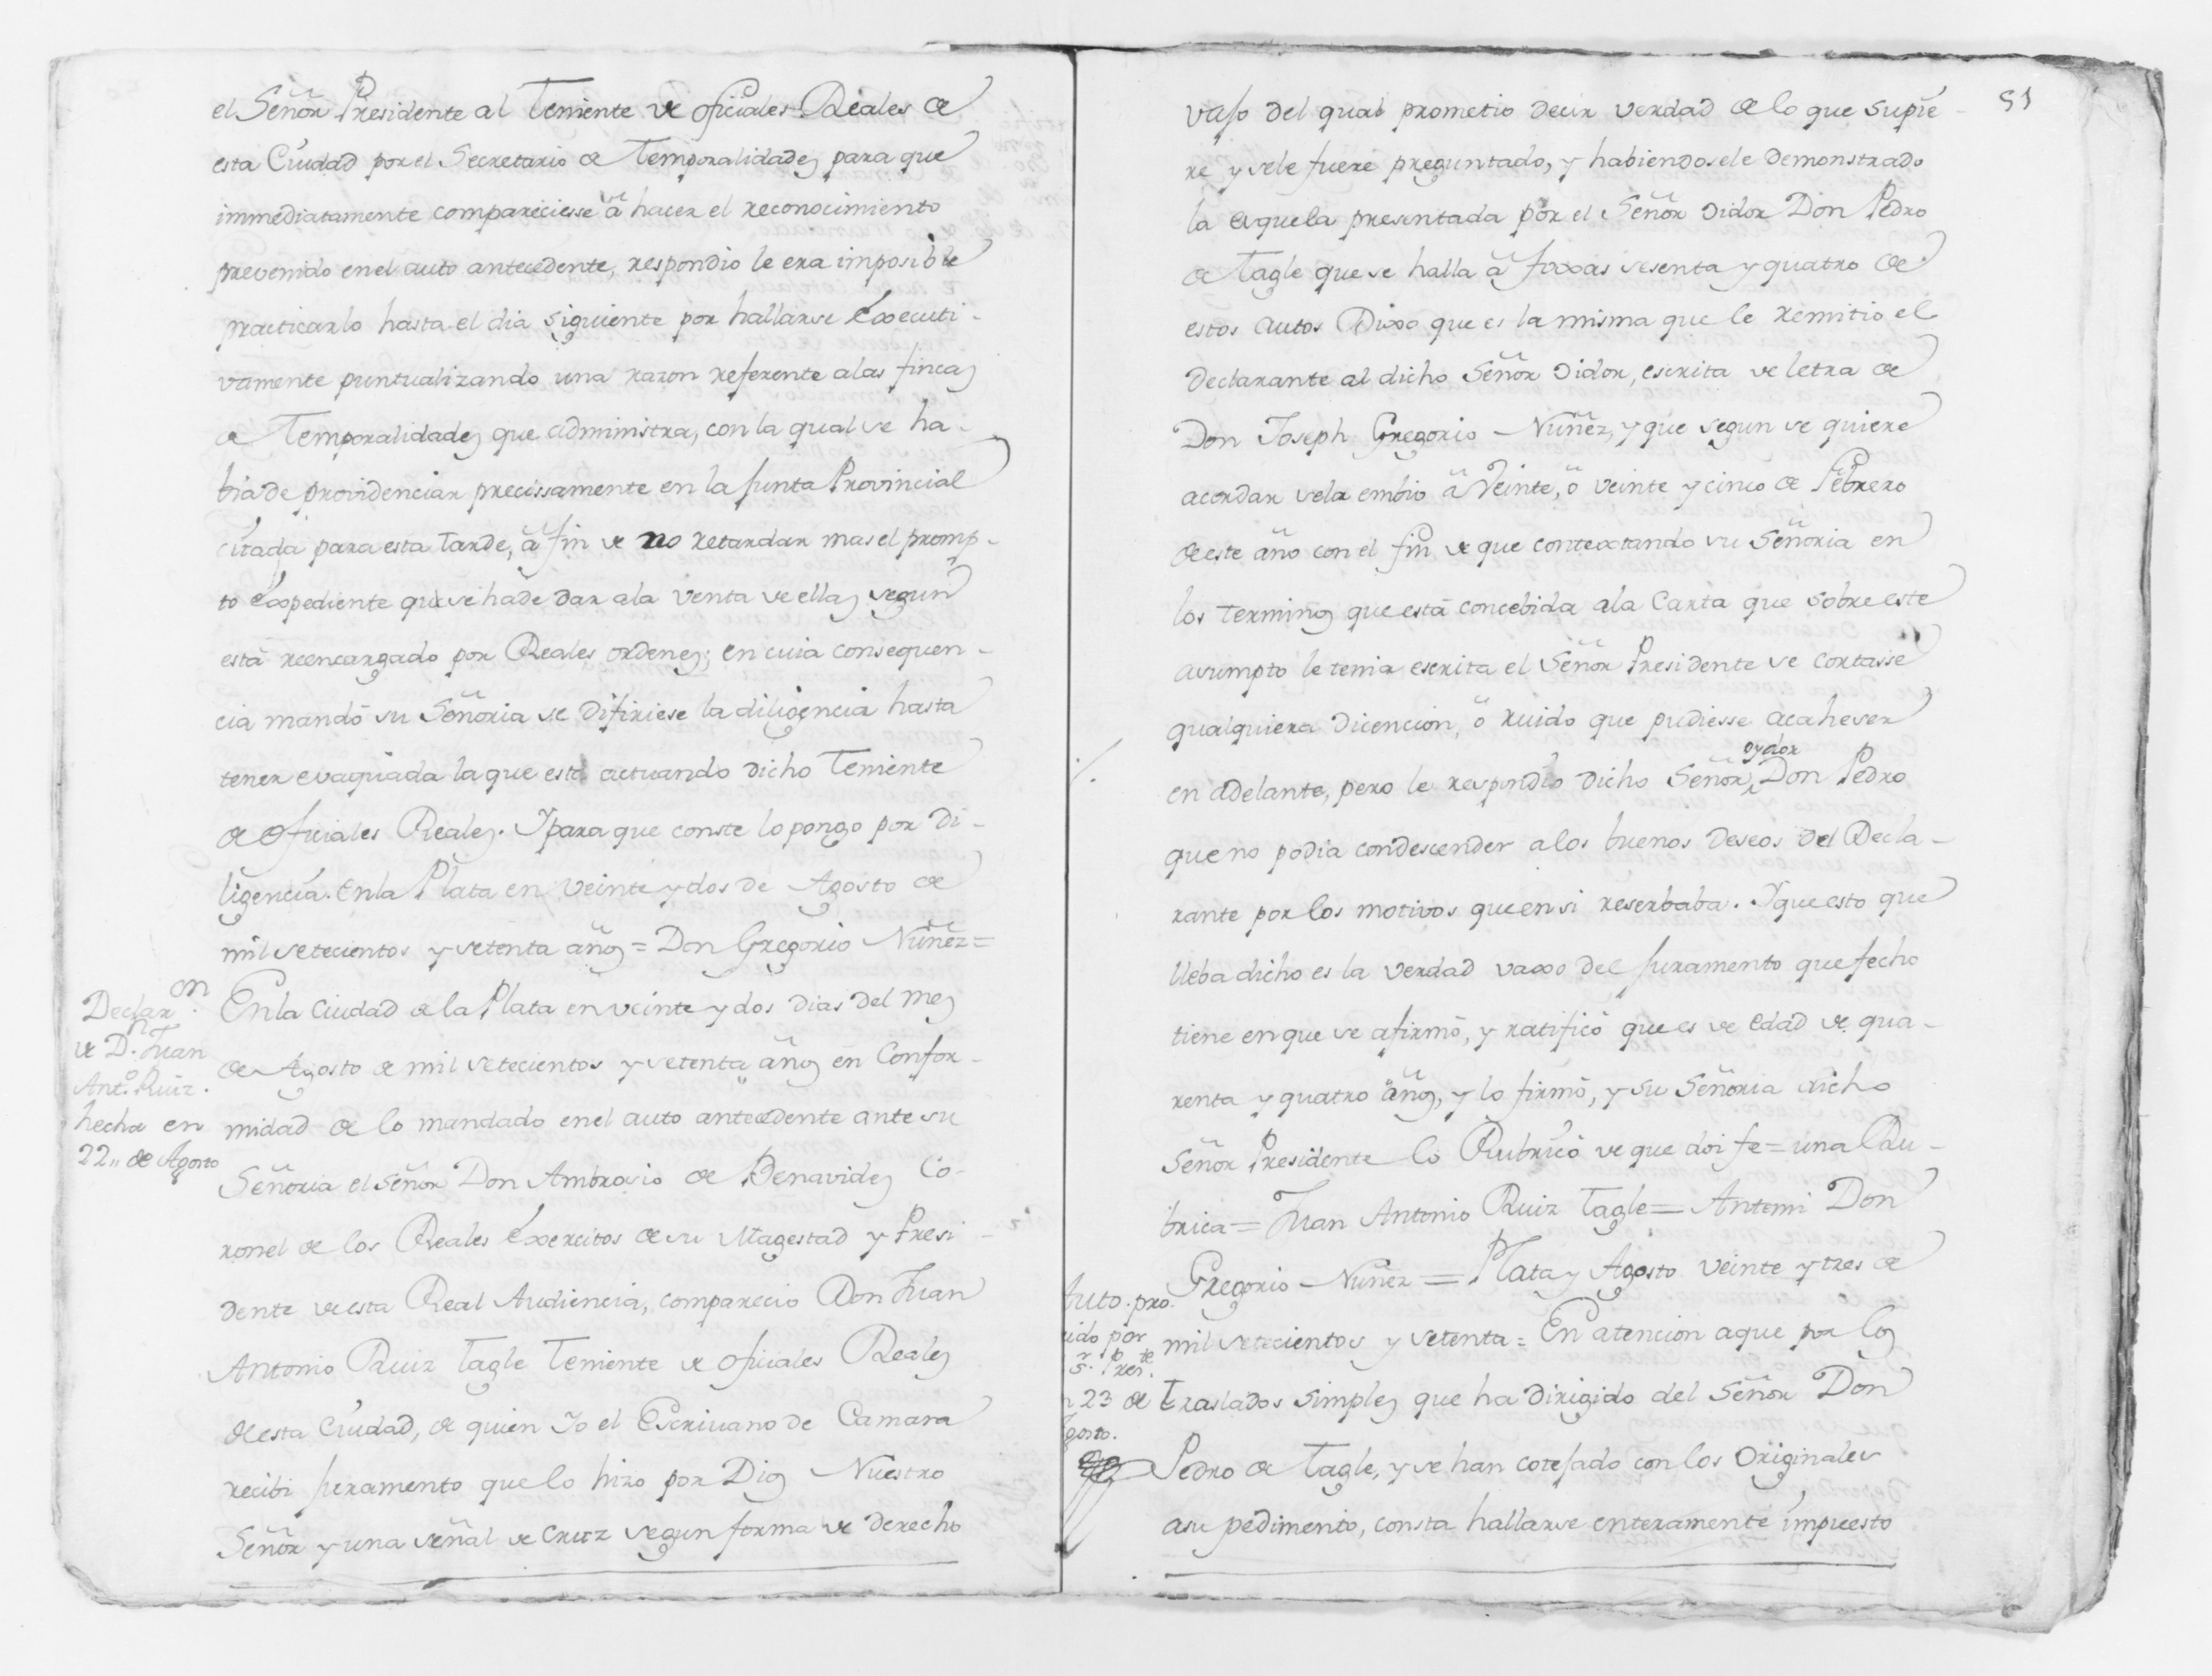 el Señor Presidente al Teniente de oficiales Reales de
esta Ciudad por el Secretario de Temporalidades para que
immediatamente compareciesse â hacer el reconocimiento
prevenido en el auto antecedente, respondio le era imposible
practicarlo hasta el dia siguiente por hallarse executi-
vamente puntualizando una razon referente alas fincas
de Temporalidades que administra, con la qual se ha-
bia de providenciar precissamente en la Junta Provincial
citada para esta tarde, â fin de no retardar mas el promp-
to expediente que se hade dar ala venta de ellas segun
está reencargado por Reales ordenes; en cuia consequen-
cia mandó su Señoria se difiriese la diligencia hasta
tener evaquada la que está actuando dicho Teniente
de oficiales Reales. Y para que conste lo pongo por di-
ligencia. En la Plata en veinte y dos de Agosto de
mil setecientos y setenta años = Don Gregorio Nuñez =
Declaron
de Dn. Juan
Anto. Ruiz.
hecha en
22,, de Agosto
En la Ciudad de la Plata en veinte y dos dias del mes
de Agosto de mil setecientos y setenta años en Confor-
midad de lo mandado en el auto antecedente ante su
Señoria el Señor Don Ambrosio de Benavides Co-
ronel de los Reales Exercitos de su Magestad y Presi-
dente de esta Real Audiencia, comparecio Don Juan
Antonio Ruiz Tagle Teniente de oficiales Reales
de esta Ciudad, de quien Yo el Escrivano de Camara
recibi Juramento que lo hizo por Dios Nuestro
Señor y una señal de Cruz segun forma de derecho
51
vajo del qual prometio decir verdad de lo que supie-
re y sele fuere preguntado, y habiendosele demonstrado
la esquela presentada por el Señor Oidor Don Pedro
de Tagle que se halla â foxas sesenta y quatro de
estos autos Dixo que es la misma que le remitio el
Declarante al dicho Señor Oidor, escrita de letra de
Don Joseph Gregorio Nuñez, y que segun se quiere
acordar sela embio â Veinte, ô veinte y cinco de Febrero
de este año con el fin de que contextando su Señoria en
los terminos que está concebida ala Carta que sobre este
asumpto le tenia escrita el Señor Presidente se cortasse
qualquiera dicencion, ô ruido que pudiesse acaheser
en adelante, pero le respondio dicho Señor oydor Don Pedro
que no podia condescender a los buenos deseos del Decla-
rante por los motivos que en si reserbaba. Y que esto que
lleba dicho es la verdad vaxo del Juramento que fecho
tiene en que se afirmó, y ratificó que es de edad de qua-
renta y quatro años, y lo firmó, y su Señoria dicho
Señor Presidente lo Rubricó de que doi fe = una Ru-
brica = Juan Antonio Ruiz Tagle = Antemi Don
Gregorio Nuñez = Plata y Agosto veinte y tres de
Auto. pro.
ido por
Sr. Preste.
n 23 de
gosto.
mil setecientos y setenta = En atencion aque por los
traslados simples que ha dirigido del Señor Don
Pedro de Tagle, y se han cotejado con los Originales
asu pedimento, consta hallarse enteramente impuesto